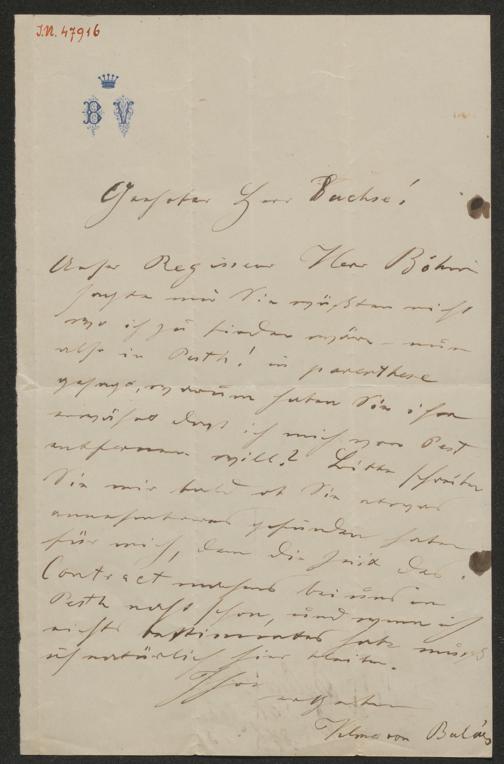 J.N. 47916
B V
Geehrter Herr Sachse!
Unser Regisseur Herr Böhm
sagte mir Sie wüßten nicht
wo ich zu finden wäre – nun
also in Pesth! in parenthese
gesagt, warum haben Sie ihm
erwähnt daß ich mich von Pest
entfernen will? Bitte schreiben
Sie mir bald ob Sie etwas
annehmbares gefunden haben
für mich, denn die Zeit des
Contractmachens bei uns in
Pesth naht schon, und wenn ich
nichts bestimmtes habe muß
ich natürlich hier bleiben.
Ihre
ergebene
Vilma von Balás